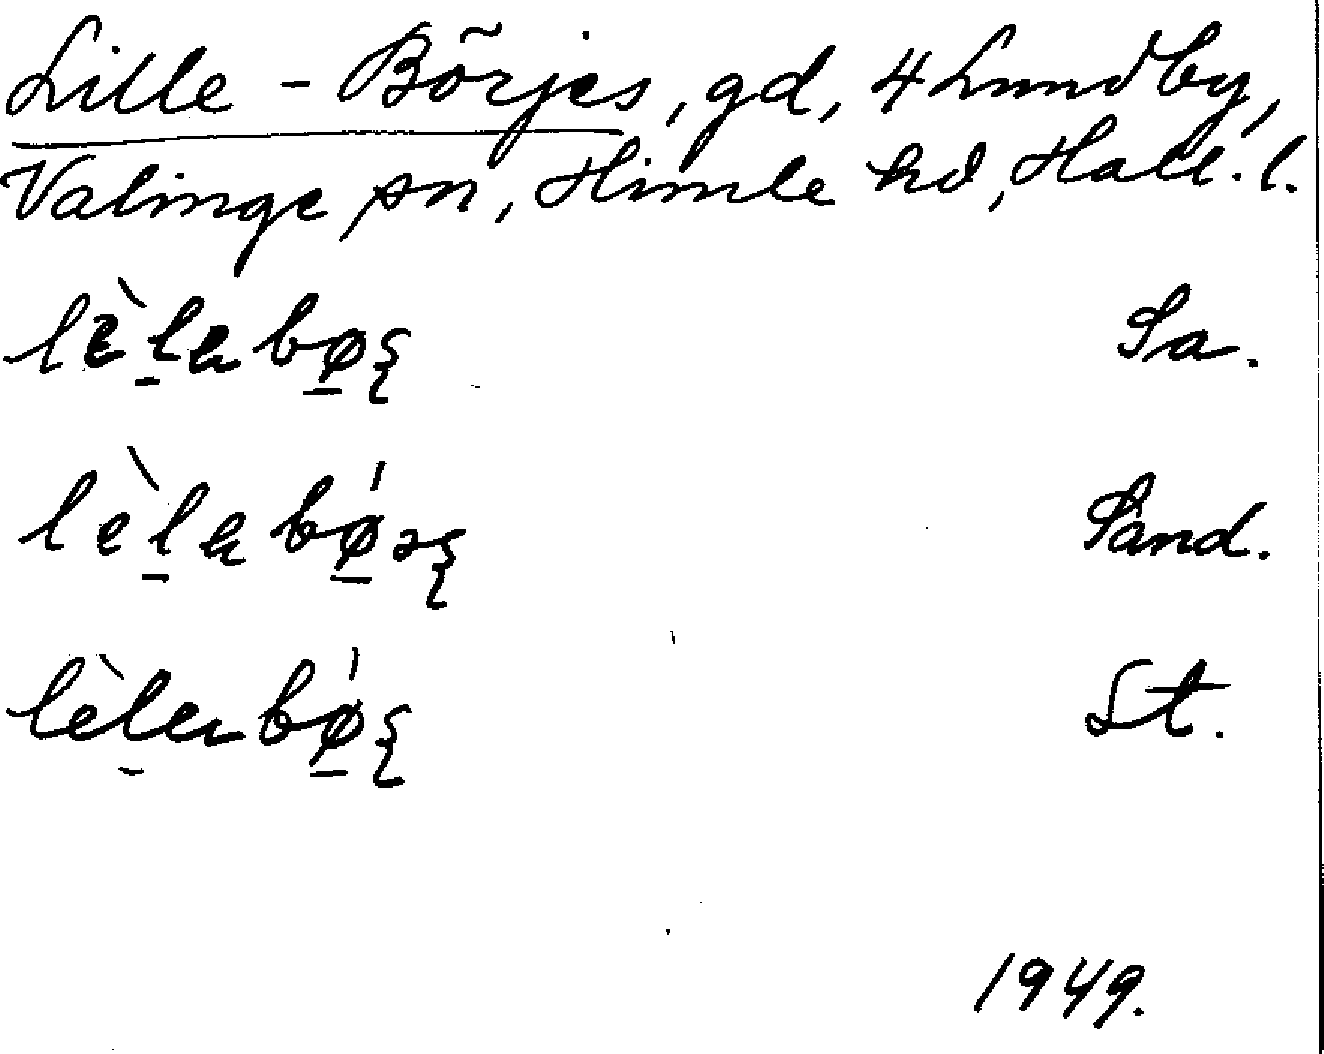 Lille-Börjes, gd, 4 Lundby,
Valinge sn, Himle hd, Hall. l.
lèlabø̱ʂ Sa.
lèlabǿ̱əʂ Sand.
lèlabǿ̱ʂ St.
1949.